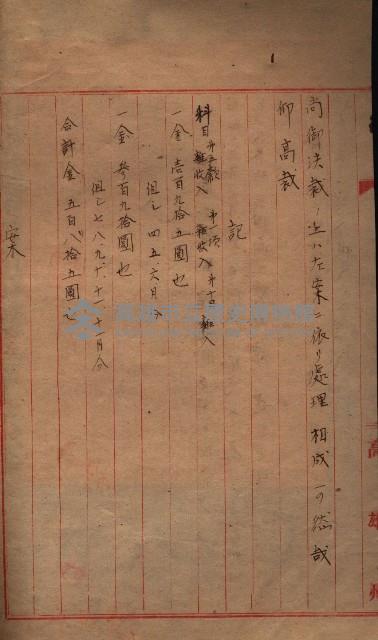 尚御決裁ノ上ハ左案ニ依リ處理相成可然哉
仰高裁
記
科目 第三款 雜收入 第一項 雜收入
一金壹百九拾五圓也
但シ四、五、六月分
一金參百九拾圓也
但シ七、八、九、十、十一、十二月分
合計金五百八拾五圓也
案
高雄州